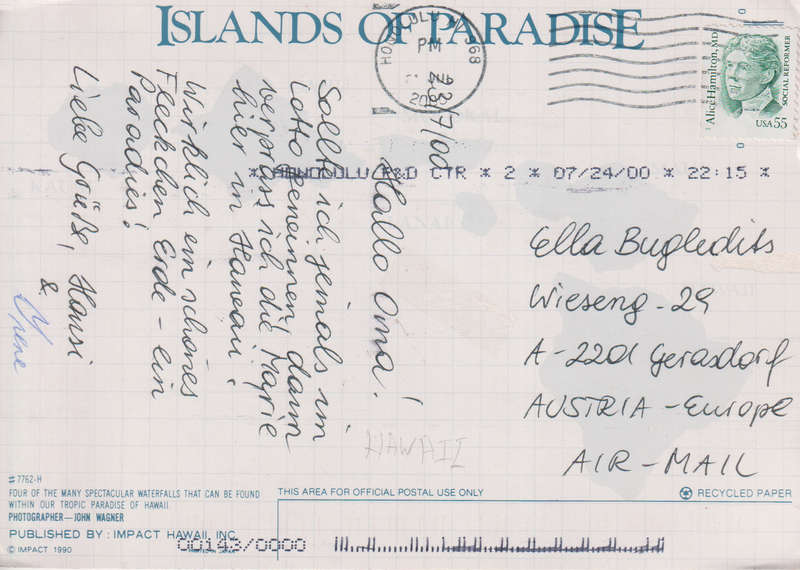 ISLANDS OF PARADISE
HONOLULU 968
PM
Alice Hamilton, MD
SOCIAL REFORMER
USA 55
23/7/00
Hallo Oma!
Sollte ich jemals im
Lotto gewinnen, dann
verprass ich die Marie
hier in Hawaii!
Wirklich ein schönes
Fleckchen Erde - ein
Paradies!
Liebe Grüße, Hansi
&
Irene
* HONOLULU P&D CTR * 2 * 07/24/00 * 22:15 *
Ella Bugledits
Wieseng. 29
A-2201 Gerasdorf
AUSTRIA - Europe
AIR-MAIL
HAWAII
#7762-H
FOUR OF THE MANY SPECTACULAR WATERFALLS THAT CAN BE FOUND
WITHIN OUR TROPIC PARADISE OF HAWAII.
PHOTOGRAPHER—JOHN WAGNER
PUBLISHED BY: IMPACT HAWAII, INC.
© IMPACT 1990
00143/0000
THIS AREA FOR OFFICIAL POSTAL USE ONLY
RECYCLED PAPER